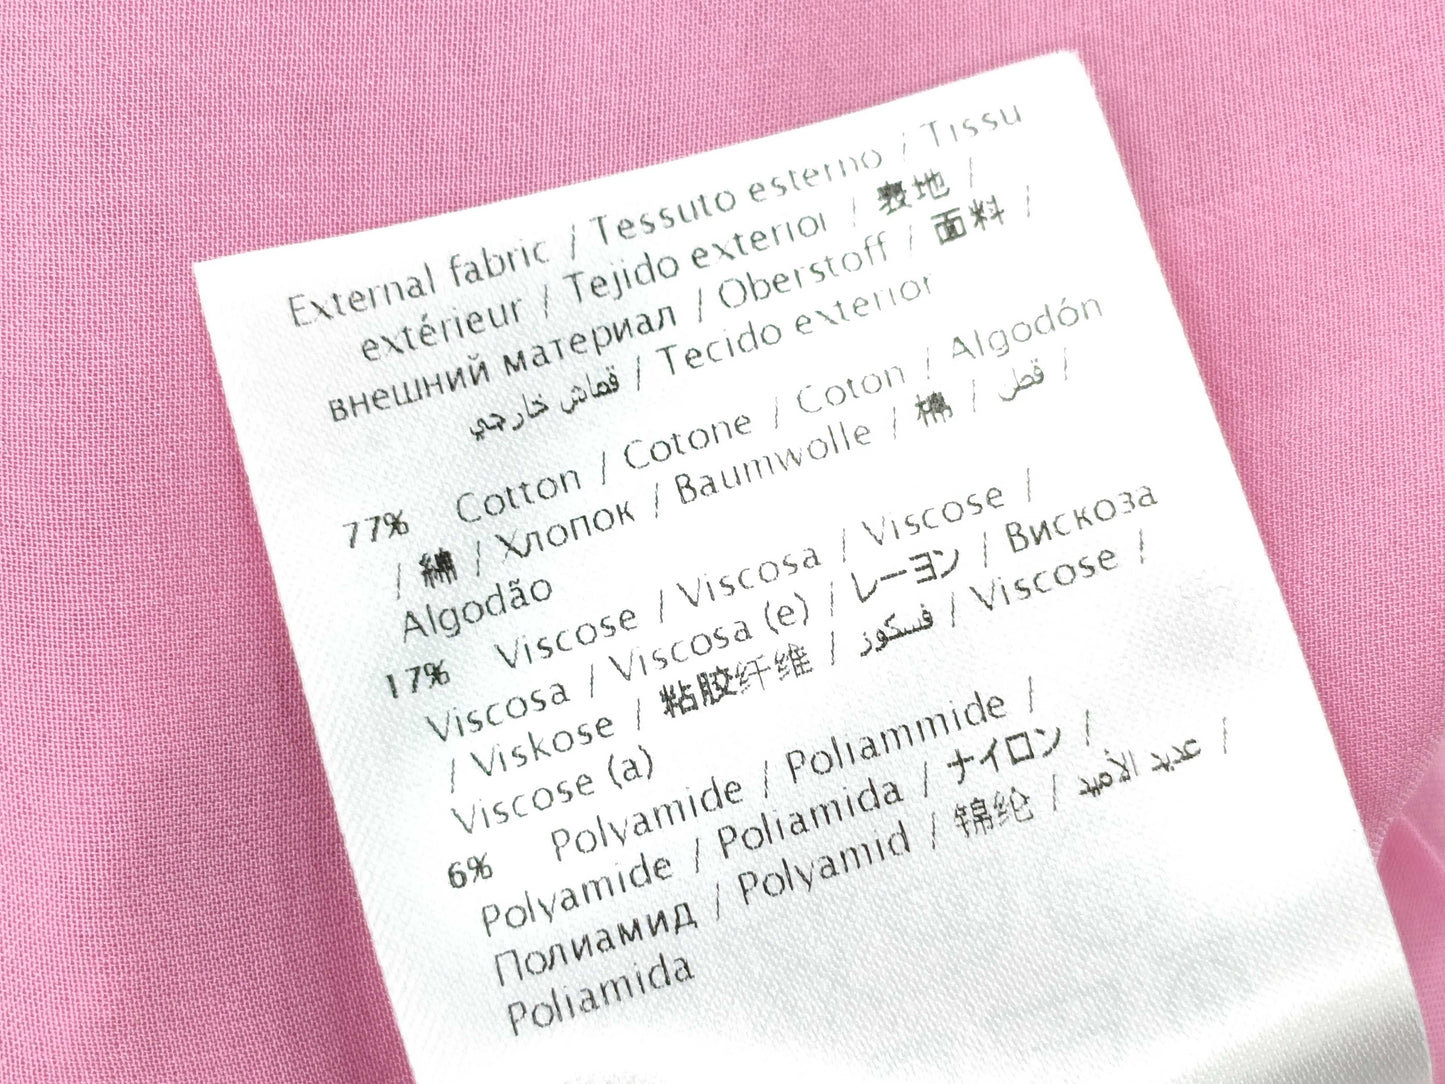 External fabric / Tessuto esterno / Tissu
extérieur / Tejido exterior / 表地 /
внешний материал / Oberstoff / 面料 /
قماش خارجي / Tecido exterior
77% Cotton / Cotone / Coton / Algodón
/ 綿 / Хлопок / Baumwolle / 棉 / قطن /
Algodão
17% Viscose / Viscosa / Viscose /
Viscosa / Viscosa (e) / レーヨン / Вискоза
/ Viskose / 粘胶纤维 / فسكوز / Viscose /
Viscose (a)
6% Polyamide / Poliammide /
Polyamide / Poliamida / ナイロン /
Полиамид / Polyamid / 锦纶 / عديد الأميد /
Poliamida